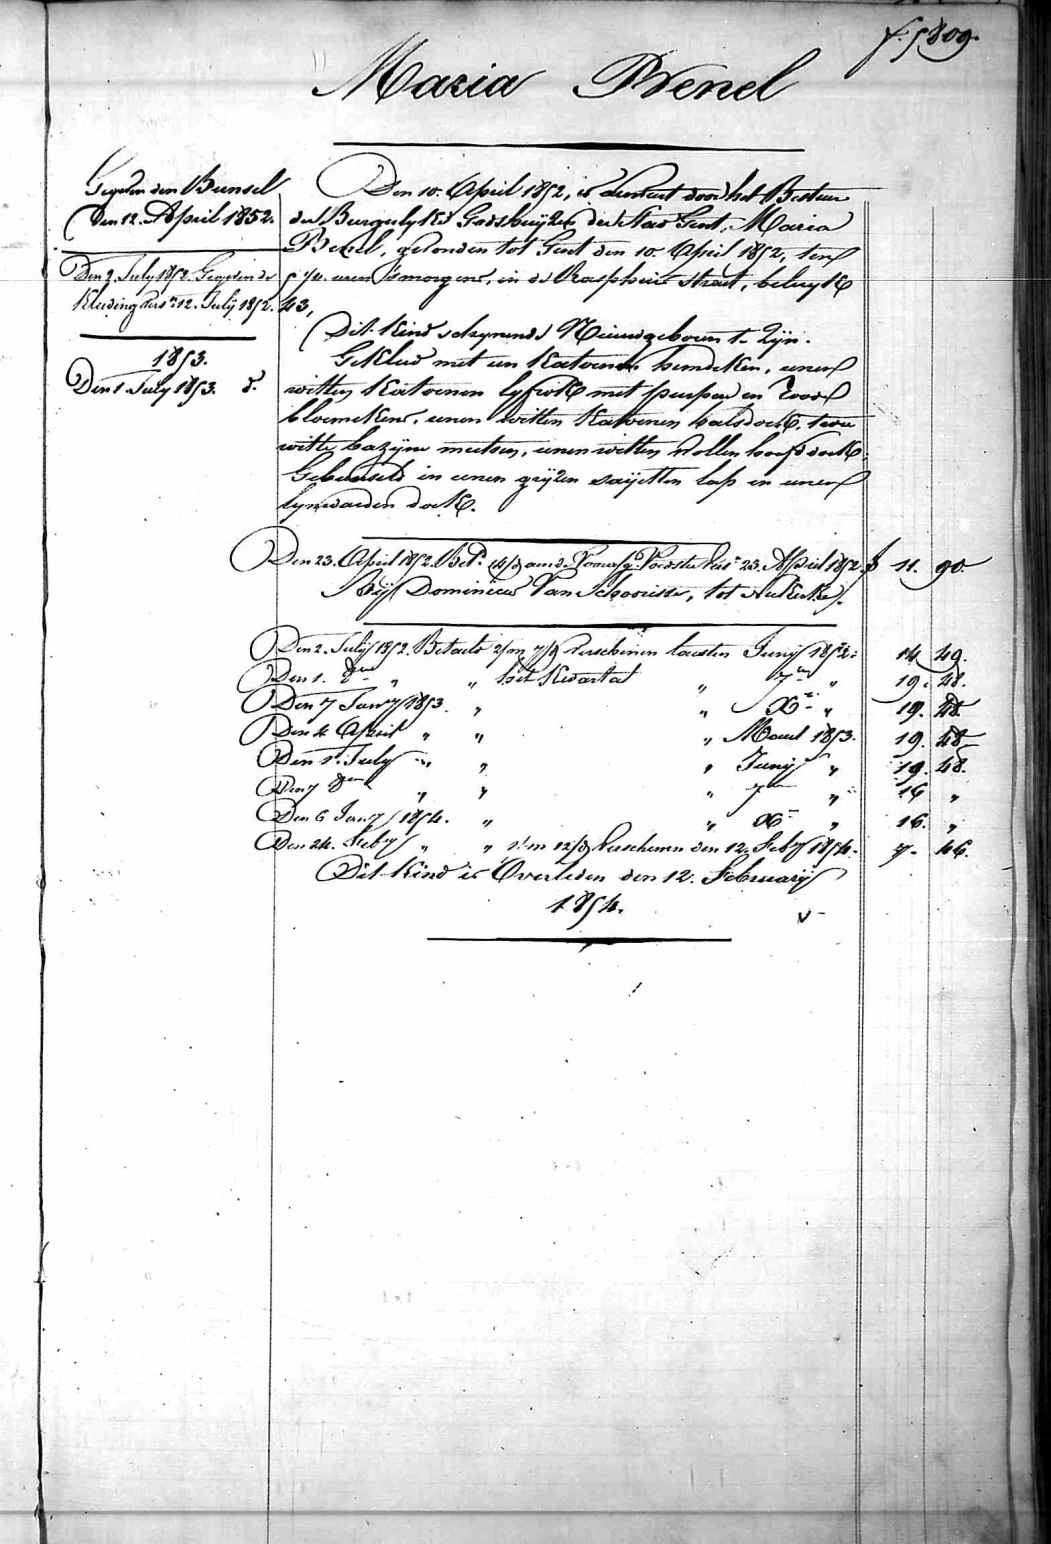 f. 1809.
Maria Prenel
Gegeven den Bunsel
Den 12. April 1852.
Den 2. July 1852. Gegeven de
Kleeding Pers. 12. July 1852.
1853.
Den 1 July 1853. d°.
Den 10. April 1852, is door het Bestuer
der Burgelyke Godshuijzen der Stad Gent, Maria
gevonden tot Gent den 10. April 1852, ten
5 1/4 uren smorgens, in de straet,
43,
Dit Kind schynende Nieuwgeboren te Zyn.
Gekleed met een Katoenen hemdeken, eenen
witten Katoenen lyfrok met purper en Rood
bloemekens, eenen witten Katoenen halsdoek, twee
witte bazyne mutsen, eenen witten Nollen hoofddoek.
Gebunseld in eenen gryzen saijetten lap en eenen
lynwaeden doek.
Den 23. April 1852. Bet. 23. April 1852 f 11. 90.
Bij Dominicus Van Schoorisse, tot
Den 2. July 1852. Betaeld 2/m 7/d Verschenen laesten Junij 1852: 14 49.
Den 1. 8ber " " het Kwartal " 7ber " 19. 48.
Den 7 Jany 1853. " " Xber " 19. 48.
Den 4 April " " " Maert 1853. 19. 48
Den 1. July " " " Junij " 19. 48.
Den 7 8ber " " " 7ber " 16 "
Den 6 Jany 1854. " " Xber " 16. "
Den 24. Feby " " 1/m 12/d Verschenen den 12. Feby 1854. 7. 46.
Dit Kind is Overleden den 12. February
1854.